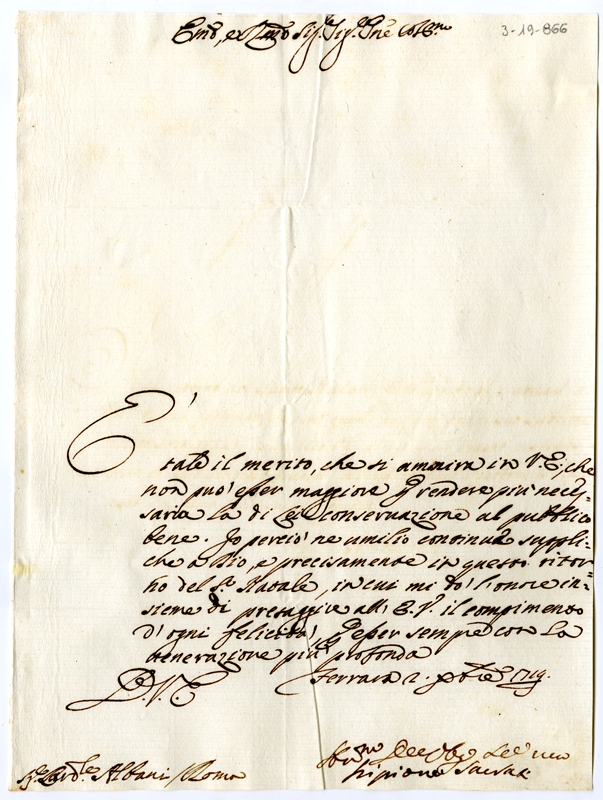 Emo, e Rmo Sig.r Sig.r Pne Colmo
3-19-866
E' tale il merito, che si ammira in V.E., che
non può esser maggiore p rendere più neces=
saria la di Lei conservazione al pubblico
bene. Io perciò ne umilio continue suppli=
che a Dio, e precisamente in questo ritor=
no del S. Natale, in cui mi dò l'onore in=
sieme di presaggire all'E.V. il compimento
d'ogni felicità, p esser sempre con la
venerazione più profonda
D. V. E.
Ferrara 2. Xbre 1719.
Sig.r Card.le Albani / Roma
Scipione Sacrati